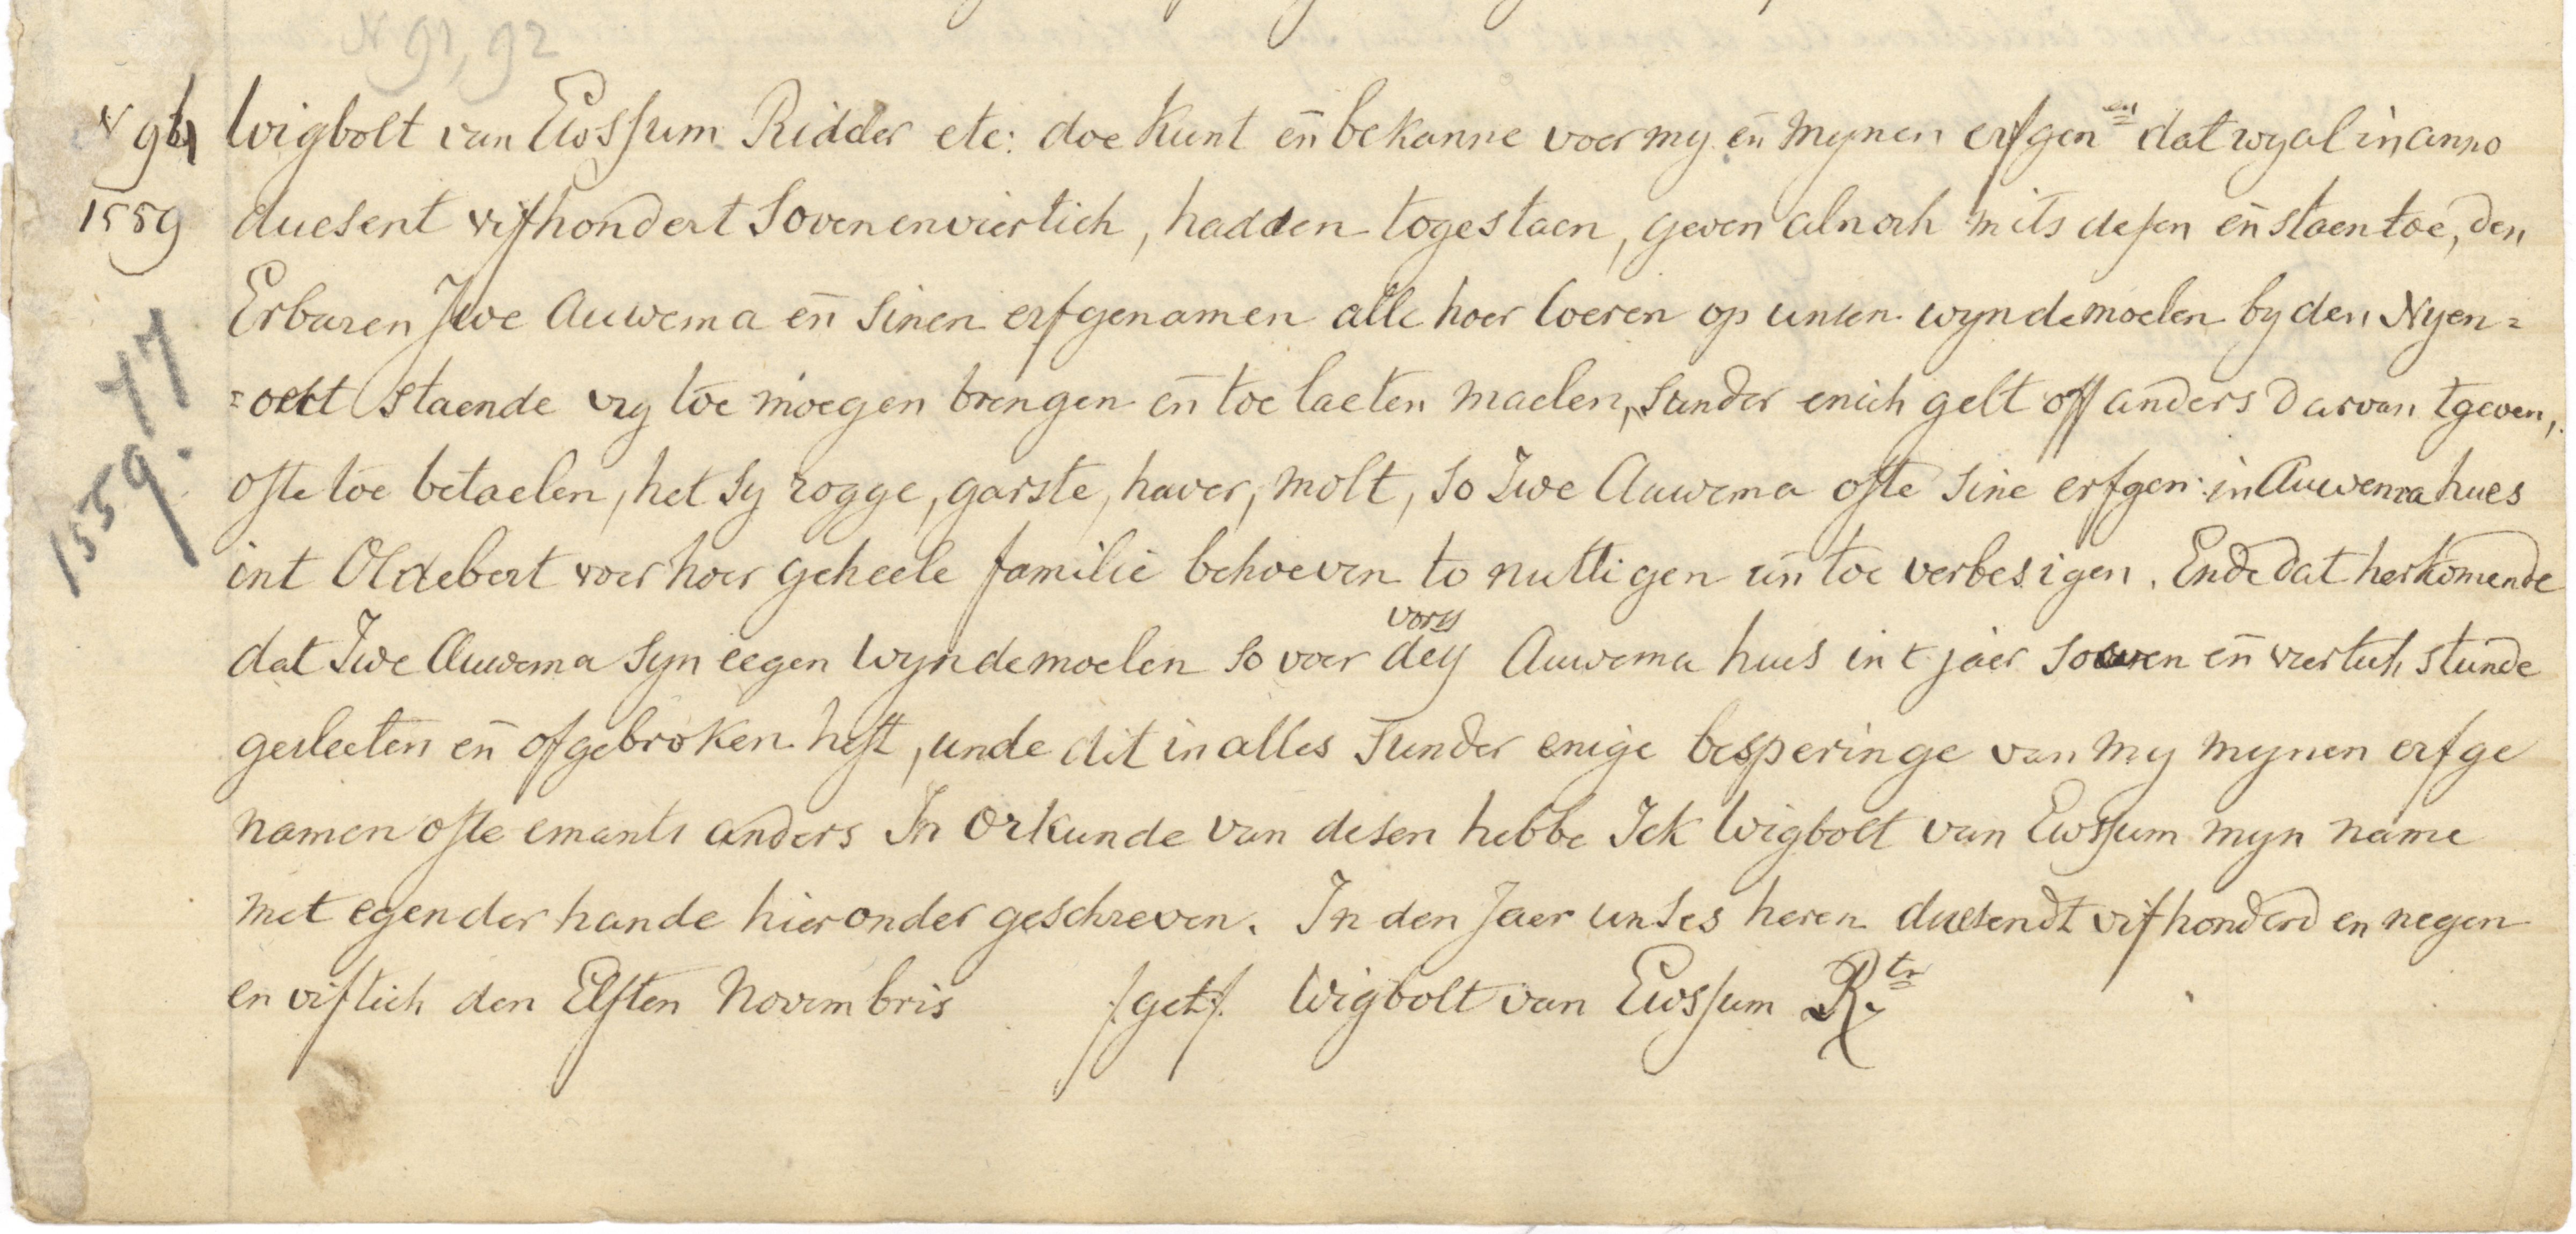 N 91, 92
N 91 Wigbolt van Ewssum Ridder etc: doe kunt eñ bekanne voer my eñ mynen erfgen en dat wy al in anno
1559 duesent vifhondert Sovenenviertich, hadden togestaen, geven alnoch mits desen eñ staen toe, den
Erbaren Iwe Auwema eñ sinen erfgenamen alle hoer coeren op unsen wyndemoelen by den Nyen=
=oert staende vry toe moegen brengen eñ toe laeten maelen, sunder enich gelt off anders darvan tgeven,
77
1559.
ofte toe betaelen, het sy rogge, garste, haver, molt, so Iwe Auwema ofte sine erfgen: in Auwema hues
int Oldebert voer hoer geheele familie behoeven to nuttigen uñ toe verbesigen. Ende dat herkomende
dat Iwe Auwema syn eegen wyndemoelen so voer dey vors Auwema hues in t jaer soven eñ viertich stunde
gesleeten eñ ofgebroken heft, unde dit in alles sunder enige besperinge van my mynen erfge
namen ofte emants anders In orkunde van desen hebbe Ick Wigbolt van Ewssum myn name
met egender hande hier onder geschreven. In den Jaer unses heren duesendt vifhonderd en negen
en viftich den Elften Novembris /:get:/ Wigbolt van Ewssum Rtr